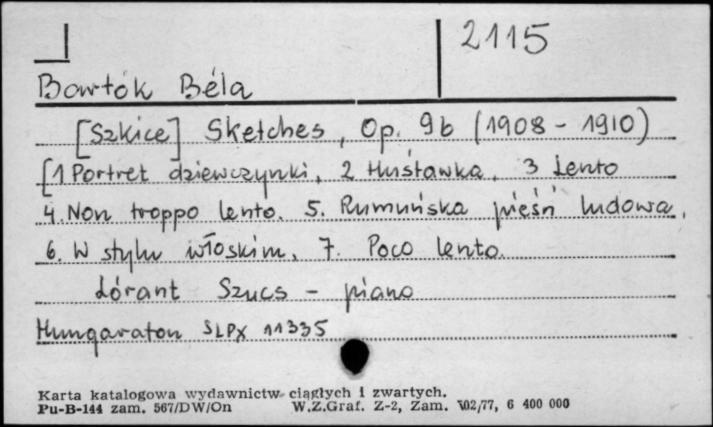 2115
Bartók Béla
[Szkice] Sketches, Op. 9b (1908-1910)
[1 Portret dziewczynki, 2 Huśtawka, 3 Lento
4. Non troppo lento. 5. Rumuńska pieśń ludowa,
6. W stylu włoskim, 7. Poco lento.
Lórant Szucs - piano
Hungaraton SLPX 11335
Karta katalogowa wydawnictw ciągłych i zwartych.
Pu-B-144 zam. 567/DW/On W.Z.Graf. Z-2, Zam. 102/77, 6 400 000